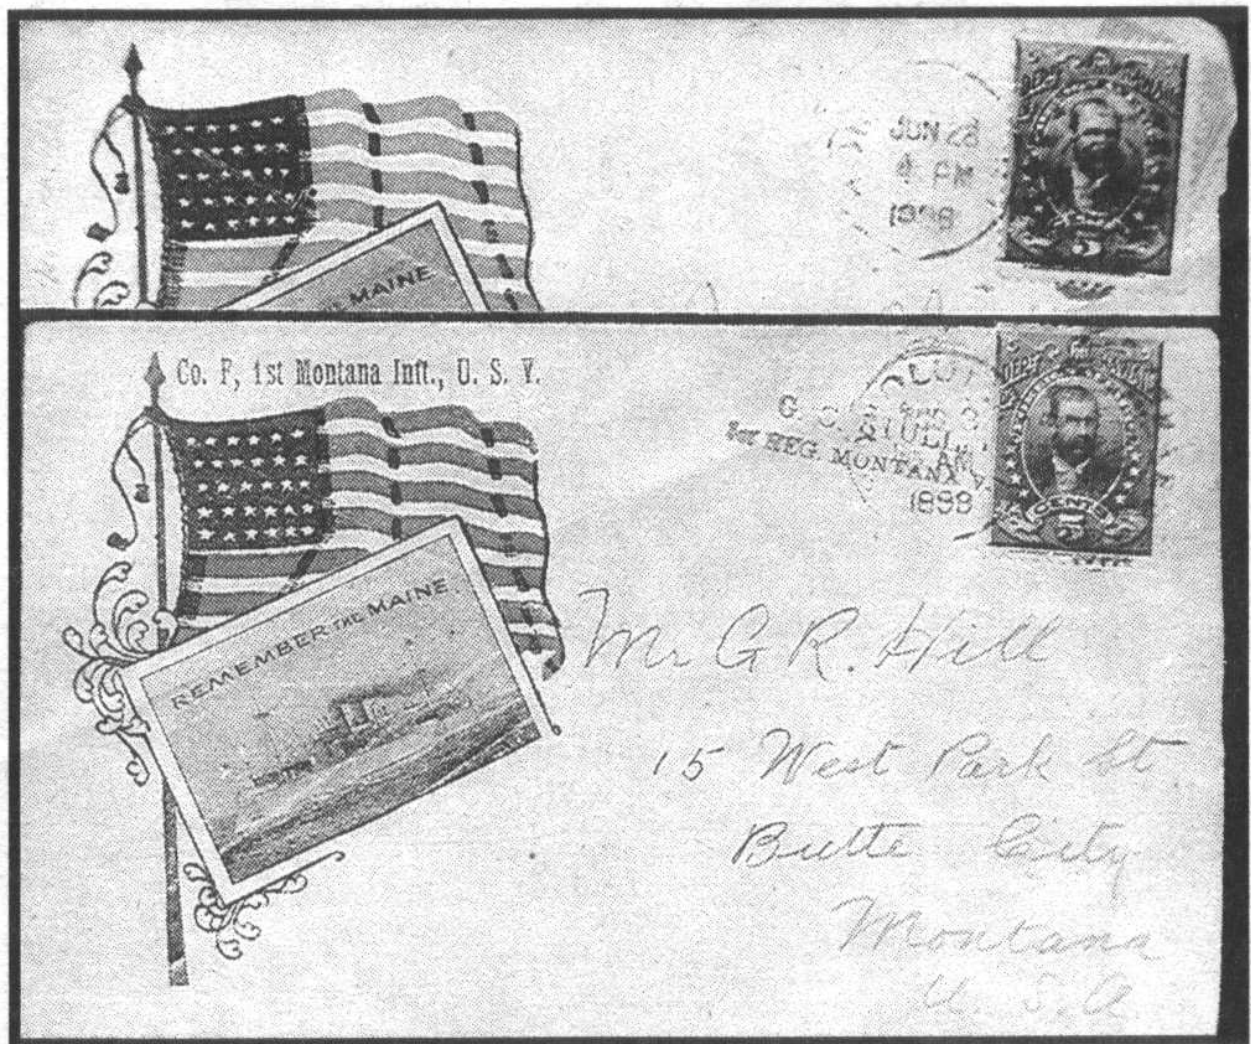 JUN 28
4 PM
1898
THE MAINE
Co. F, 1st Montana Inft., U. S. V.
G. C.
1st REG. MONTANA V.
AM
1898
CENTS
REMEMBER THE MAINE
Mr G R. Hill
15 West Park St
Butte City
Montana
U. S. A